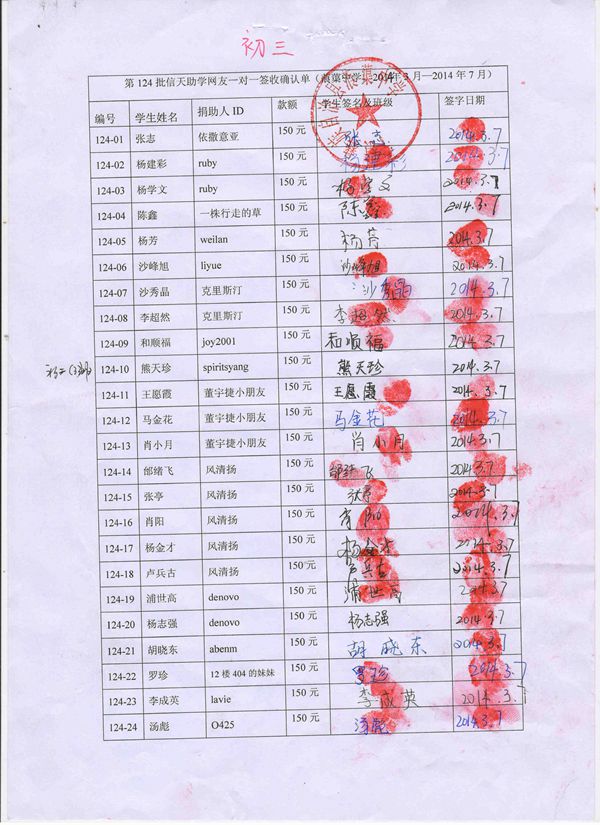 初三
第 124 批信天助学网友一对一签收确认单（蒗蕖中学，2014年 3 月—2014 年 7 月）
编号 学生姓名 捐助人 ID 款额 学生签名及班级 签字日期
124-01 张志 依撒意亚 150 元 张志 2014.3.7
124-02 杨建彩 ruby 150 元 杨建彩 2014.3.7
124-03 杨学文 ruby 150 元 杨学文 2014.3.7
124-04 陈鑫 一株行走的草 150 元 陈鑫 2014.3.7
124-05 杨芳 weilan 150 元 杨芳 2014.3.7
124-06 沙峰旭 liyue 150 元 沙峰旭 2014.3.7
124-07 沙秀晶 克里斯汀 150 元 沙秀晶 2014.3.7
124-08 李超然 克里斯汀 150 元 李超然 2014.3.7
124-09 和顺福 joy2001 150 元 和顺福 2014.3.7
124-10 熊天珍 spiritsyang 150 元 熊天珍 2014.3.7
124-11 王愿霞 董宇捷小朋友 150 元 王愿霞 2014.3.7
124-12 马金花 董宇捷小朋友 150 元 马金花 2014.3.7
124-13 肖小月 董宇捷小朋友 150 元 肖小月 2014.3.7
124-14 邰绪飞 风清扬 150 元 邰绪飞 2014.3.7
124-15 张亭 风清扬 150 元 张亭 2014.3.7
124-16 肖阳 风清扬 150 元 肖阳 2014.3.7
124-17 杨金才 风清扬 150 元 杨金才 2014.3.7
124-18 卢兵古 风清扬 150 元 卢兵古 2014.3.7
124-19 浦世高 denovo 150 元 浦世高 2014.3.7
124-20 杨志强 denovo 150 元 杨志强 2014.3.7
124-21 胡晓东 abenm 150 元 胡晓东 2014.3.7
124-22 罗珍 12 楼 404 的妹妹 150 元 罗珍 2014.3.7
124-23 李成英 lavie 150 元 李成英 2014.3.7
124-24 汤彪 O425 150 元 汤彪 2014.3.7